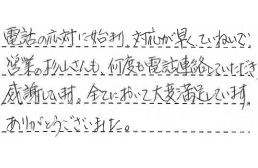 電話の応対に始まり、対応が早く、ていねいで
営業の杉山さんも、何度も電話連絡していただき
感謝します。全てにおいて大変満足しています。
ありがとうございました。